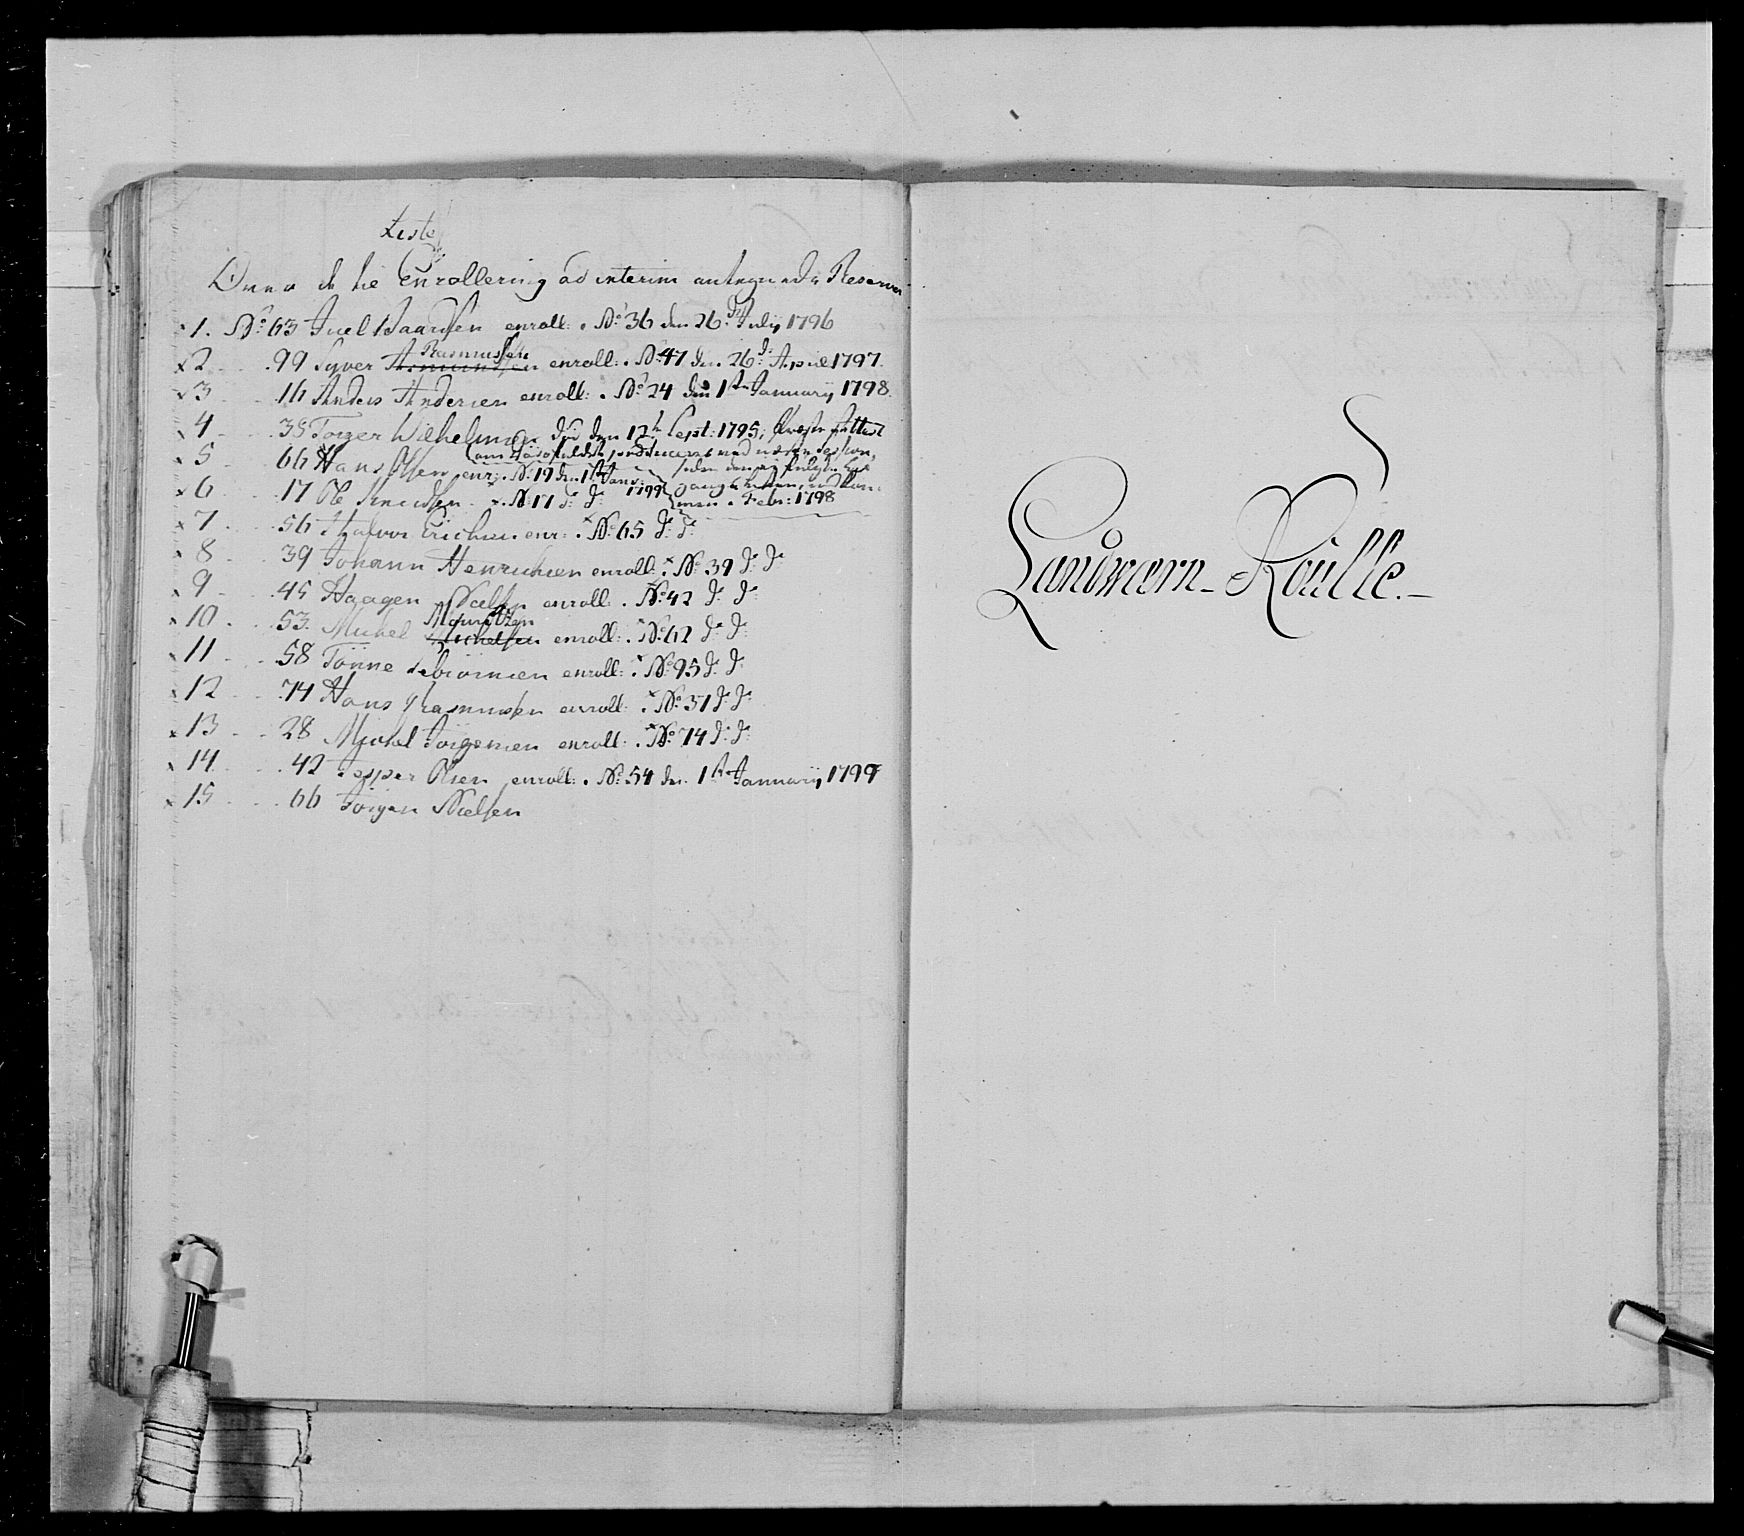 Liste
Over de til Enrollering ad interim antegnede Reserver
x 1. No 63 Juel enroll: No 36 den 26de July 1796
x 2 99 Syver Asmundsen Rasmussen enroll: No 47 den 26d: April 1797.
x 3 16 Anders Andersen enroll: No 24 den 1ste January 1798.
x 4 35 Torger Wilhelmsen død den 12te Sept: 1795,
x 5 66 Hans Olsen enr: No 19 den 1ste Janu: 1799
x 6 17 Ole Knudsen No 17 d: d: Febr: 1798
x 7 56 Halvor Erichsen enr: No 65 d: d:
x 8 39 Johann Henrichsen enroll: No 39 d: d:
x 9 45 Haagen Nielsen enroll: No 42 d: d:
x 10 53 Michel Michelsen Mouritzen enroll: No 62 d: d:
x 11 58 Tönne enroll: No 95 d: d:
x 12 74 Hans Rasmussen enroll: No 31 d: d:
x 13 28 Michel Jörgensen enroll: No 74 d: d:
x 14 42 Jesper Olsen enroll: No 54 den 1ste January 1799
x 15 66 Jörgen Nielsen
Landværn-Roulle.-